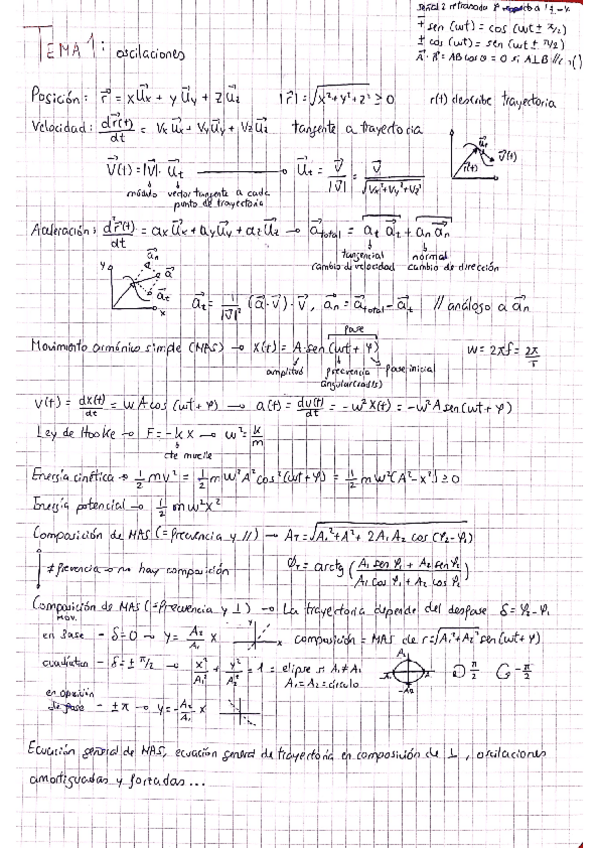 señal 2 retrasada
± sen (ωt) = cos (ωt ± π/2)
± cos (ωt) = sen (ωt ± π/2)
A⃗ · B⃗ = AB cos θ = 0 si A⊥B
TEMA 1: oscilaciones
Posición: r⃗ = x u⃗x + y u⃗y + z u⃗z   |r⃗| = √(x² + y² + z²) ≥ 0   r(t) describe trayectoria
Velocidad: dr⃗(t)/dt = Vx u⃗x + Vy u⃗y + Vz u⃗z   tangente a trayectoria
V⃗(t) = |V⃗| · u⃗t → u⃗t = V⃗/|V⃗| = V⃗/√(Vx² + Vy² + Vz²)
módulo vector tangente a cada
punto de trayectoria
u⃗t
V⃗(t)
r⃗(t)
Aceleración: d²r⃗(t)/dt = ax u⃗x + ay u⃗y + az u⃗z → a⃗total = at a⃗t + an a⃗n
tangencial normal
cambio de velocidad cambio de dirección
y a⃗n a⃗ a⃗t x
a⃗t = 1/|V⃗|² (a⃗ · V⃗) · V⃗, a⃗n = a⃗total − a⃗t // análogo a a⃗n
fase
Movimiento armónico simple (MAS) → x(t) = A · sen (ωt + φ)   ω = 2πf = 2π/T
amplitud frecuencia fase inicial
angular (rad/s)
V(t) = dx(t)/dt = ωA cos (ωt + φ) → a(t) = dv(t)/dt = −ω² x(t) = −ω² A sen (ωt + φ)
Ley de Hooke → F = −k x → ω² = k/m
cte muelle
Energía cinética → 1/2 mv² = 1/2 m ω² A² cos² (ωt + φ) = 1/2 m ω² (A² − x²) ≥ 0
Energía potencial → 1/2 m ω² x²
Composición de MAS (= frecuencia y //) → AT = √(A₁² + A² + 2A₁ A₂ cos (φ₂ − φ₁)
≠ frecuencia → no hay composición   φT = arctg (A₁ sen φ₁ + A₂ sen φ₂ / A₁ cos φ₁ + A₂ cos φ₂)
Composición de MAS (= frecuencia y ⊥) → La trayectoria depende del desfase δ = φ₂ − φ₁
mov.
en fase − δ = 0 → y = A₂/A₁ x   composición = MAS de r = √(A₁² + A₂²) sen (ωt + φ)
cuadratura − δ = ± π/2 → x²/A₁² + y²/A₂² = 1 = elipse si A₁ ≠ A₂
A₁ = A₂ = círculo
A₁ −A₂ π/2 −π/2
en oposición
de fase − ± π → y = −A₂/A₁ x
Ecuación general de MAS, ecuación general de trayectoria en composición de ⊥, oscilaciones
amortiguadas y forzadas...